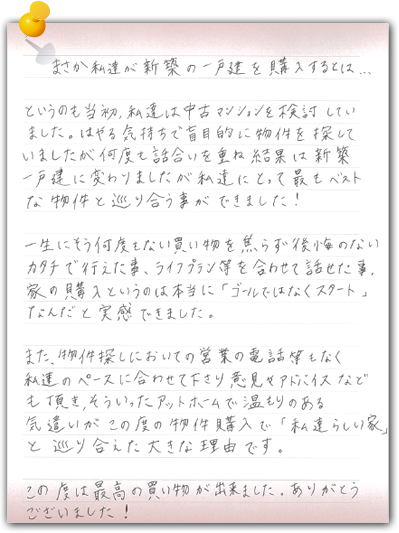 まさか私達が新築の一戸建を購入するとは…
というのも当初、私達は中古マンションを検討してい
ました。はやる気持ちで盲目的に物件を探して
いましたが何度も話合いを重ね結果は新築
一戸建に変わりましたが私達にとって最もベスト
な物件と巡り合う事ができました！
一生にそう何度もない買い物を焦らず後悔のない
カタチで行えた事、ライフプラン等を合わせて話せた事、
家の購入というのは本当に「ゴールではなくスタート」
なんだと実感できました。
また、物件探しにおいての営業の電話等もなく
私達のペースに合わせて下さり意見やアドバイスなど
も頂き、そういったアットホームで温もりのある
気遣いがこの度の物件購入で「私達らしい家」
と巡り合えた大きな理由です。
この度は最高の買い物が出来ました。ありがとう
ございました！